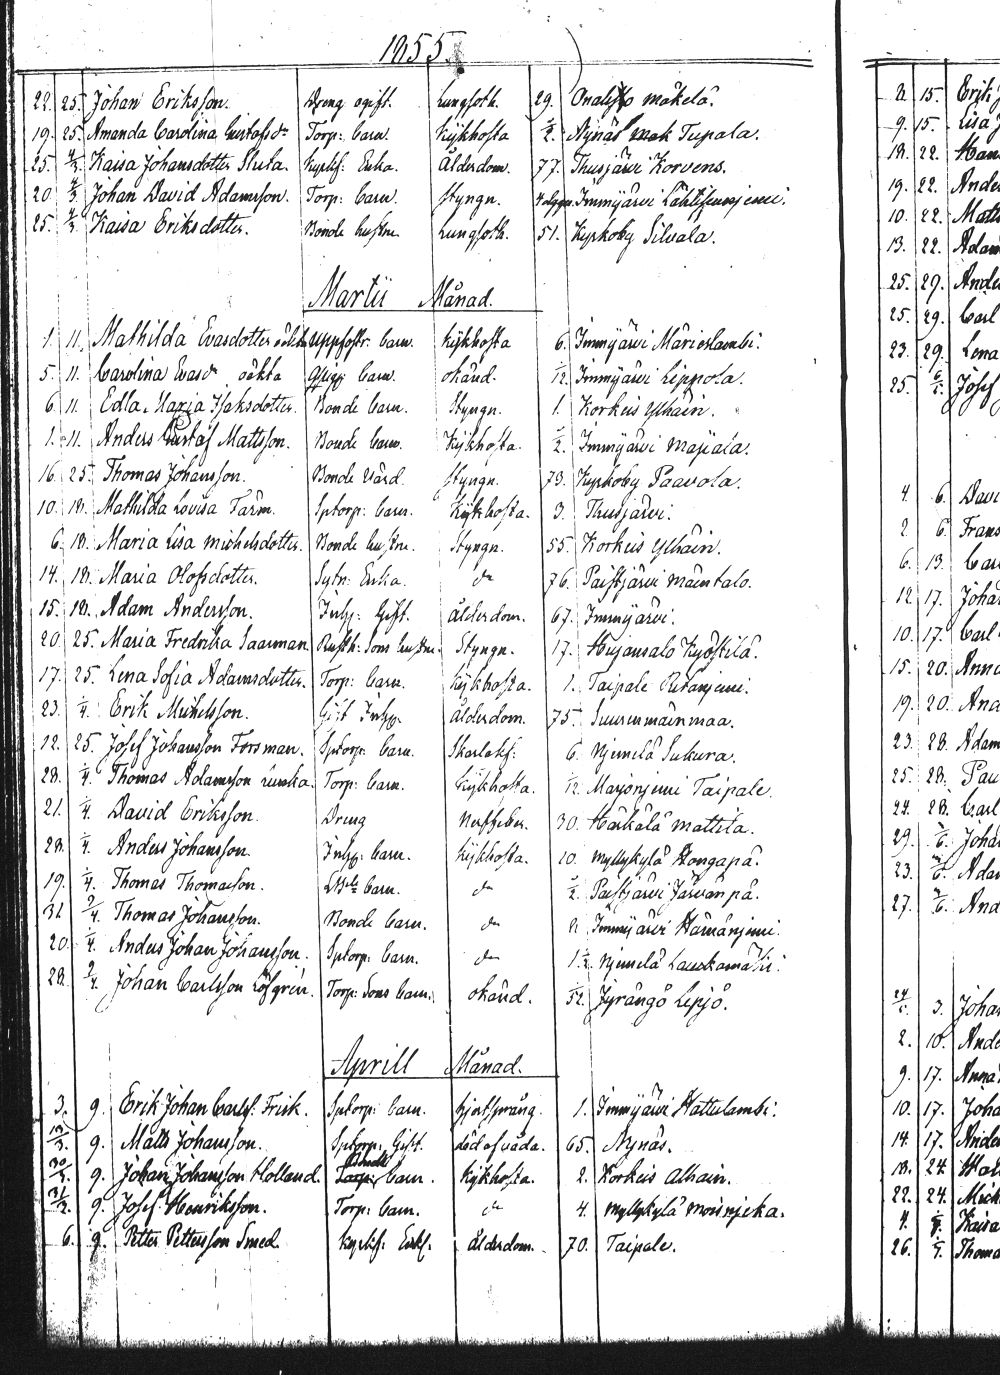 1855.
22. 25. Johan Eriksson. Dreng ogift. Lungsoth. 29. Onalisto mäkelä.
19. 25. Amanda Carolina Gustafsdr Torp: barn. Kijkhosta ½. Nynäs Tupala.
25. 4/3. Kaisa Johansdotter Sluta. Kyrkhj: Enka. Ålderdom. 77. Thusjärvi Korvens.
20. 4/3. Johan David Adamsson. Torp: barn. Styngn. Immjärvi
25. 4/3. Kaisa Eriksdotter. Bonde hustru. Lungsoth. 51. Kyrkoby Silvala.
Martii Månad.
1. 11. Mathilda Evasdotter oäkta uppfostr: barn. Kijkhosta 6. Immjärvi Marieslambi.
5. 11. Carolina Evasdr oäkta barn. okänd. 1/12. Immjärvi Leppola.
6. 11. Edla Maria Isaksdotter. Bonde barn. Styngn. 1. Korkeis Ylhäin.
1. 11. Anders Gustaf Mattsson. Bonde barn. Kijkhosta. ½. Immjärvi Majiala.
16. 25. Thomas Johansson. Bonde Värd. Styngn. 73. Kyrkoby Paavola.
10. 18. Mathilda Lovisa Färm. Sptorp: barn. Kijkhosta. 3. Thusjärvi.
6. 18. Maria Lisa Michelsdotter. Bonde hustru. Styngn. 55. Korkeis Ylhäin.
14. 18. Maria Olofsdotter. Sytn: Enka. do 76. Paistjärvi Mäentalo.
15. 18. Adam Andersson. Inhy: Gift. ålderdom. 67. Immjärvi.
20. 25. Maria Fredrika Saarman. Rusth: Sons hustru. Styngn. 17. Hujansalo Kyöstilä.
17. 25. Lena Sofia Adamsdotter. Torp: barn. Kijkhosta. 1. Taipale
23. 1/4. Erik Michelsson. Gift Inhy. ålderdom. 75. Suurenmäinmaa.
12. 25. Josef Johansson Forsman. Sptorp: barn. Skarlakf: 6. Njemelä Sukura.
28. 1/4. Thomas Adamsson Torp: barn. Kijkhosta. 1/12. Marjonjemi Taipale.
21. 1/4. David Eriksson. Dreng Nerffeber. 30. Härkälä Mattila.
28. 1/4. Anders Johansson. Inhy: barn. Kijkhosta. 10. Myllykylä Hongapä.
19. 1/4. Thomas Thomasson. barn. do ½. Paistjärvi Järvänpä.
31. 2/4. Thomas Johansson. Bonde barn. do Immjärvi Hämänjemi.
20. 1/4. Anders Johan Johansson. Sptorp: barn. do 1½. Njemelä Lauskamäki.
28. 2/4. Johan Carlsson Löfgren. Torp: Sons barn. okänd. 1/52. Jyrängö Lepjö.
Aprill Månad.
3. 9. Erik Johan Carlss: Frisk. Sptorp: barn. hjertsprång. 1. Immjärvi Hattulambi.
13/3. 9. Matts Johansson. Sptorp: Gift. död af våda. 65. Nynäs.
30/3. 9. Johan Johansson Holland. Bonde barn. Kijkhosta. 2. Korkeis Alhain.
31/3. 9. Josef Henriksson. Torp: barn. do 4. Myllykylä
6. 9. Petter Pettersson Smed. Kyrkhj: Enkl: ålderdom. 70. Taipale.
15. Erik
9. 15. Lisa
18. 22. Han
19. 22. Ande
10. 22. Matts
13. 22. Adam
25. 29. Ande
25. 29. Carl
23. 29. Lena
25. Josef
4. 6. Davi
2. 6. Frans
6. 13. Car
12. 17. Joha
10. 17. Carl
15. 20. Anna
19. 20. And
23. 28. Adam
25. 28. Pau
24. 28. Carl
29. Joha
23. Adam
27. And
3. Johan
2. 10. Ande
9. 17. Anna
10. 17. Joha
14. 17. Ande
18. 24. Mat
22. 24. Mich
4. Kaisa
26. Thoma